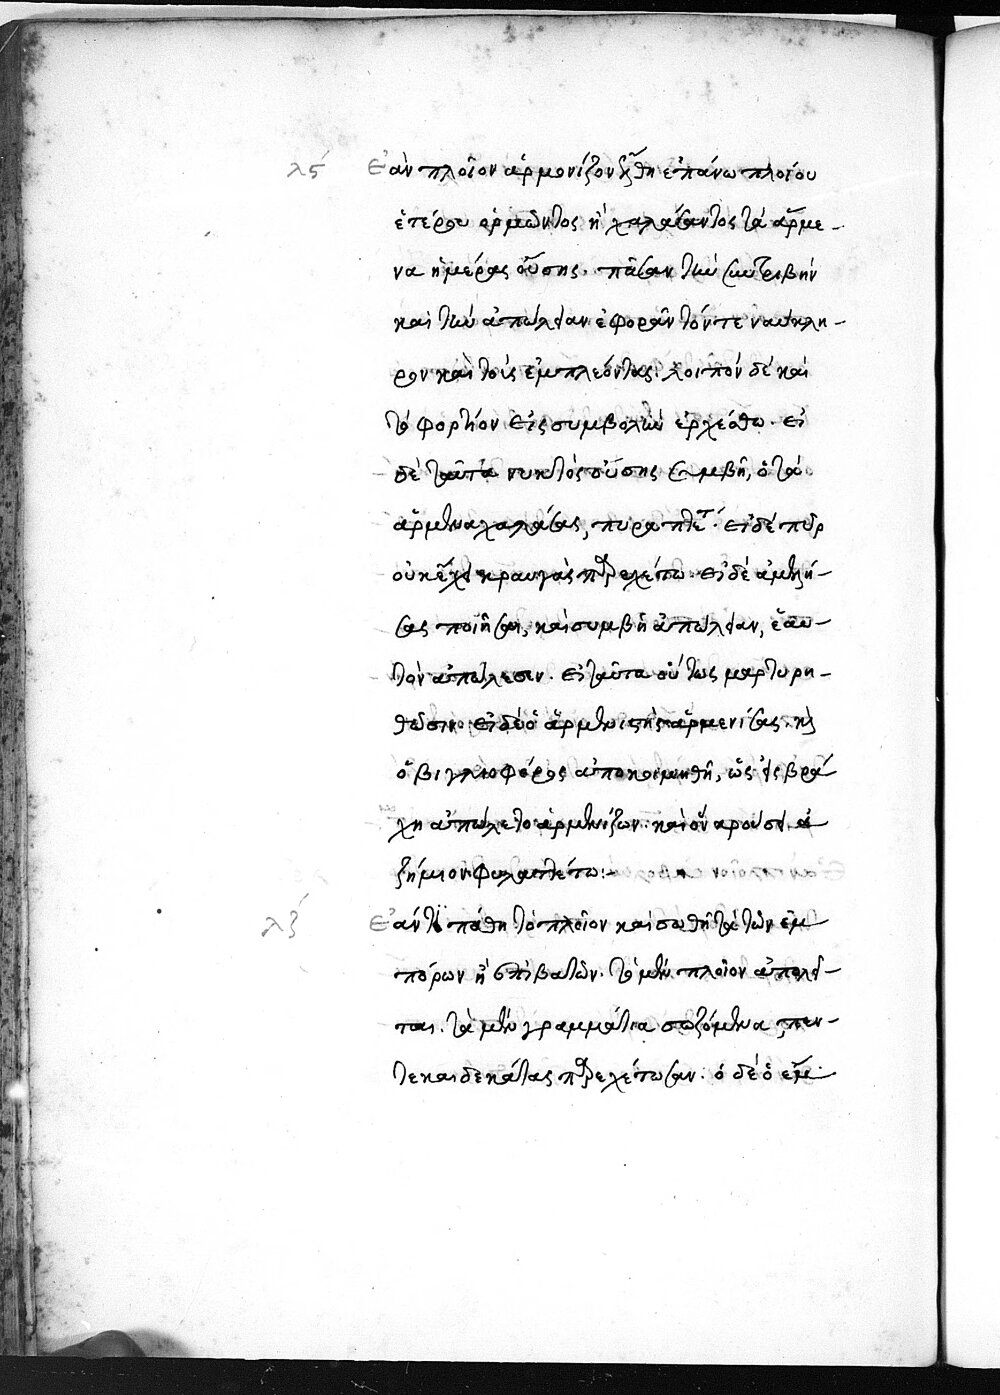 λϛ Ἐὰν πλοῖον ἁρμενίζον ἔλθῃ ἐπάνω πλοίου
ἑτέρου ὁρμῶντος ἢ χαλάσαντος τὰ ἄρμε-
να ἡμέρας οὔσης. πᾶσαν τὴν συντριβὴν
καὶ τὴν ἀπώλειαν ἐφορᾶν τόν τε ναύκλη-
ρον καὶ τοὺς ἐμπλέοντας. λοιπὸν δὲ καὶ
τὸ φορτίον εἰς συμβολὴν ἐρχέσθω. εἰ
δὲ ταῦτα νυκτὸς οὔσης συμβῇ, ὁ τὰ
ἄρμενα χαλάσας, πῦρ ἁπτέτω. εἰ δὲ πῦρ
οὐκ ἔχει κραυγὰς παρεχέτω. εἰ δὲ ἀμελή-
σας ποιῆσαι, καὶ συμβῇ ἀπώλειαν, ἑαυ-
τὸν ἀπώλεσεν. εἰ ταῦτα οὕτως μαρτυρη-
θῶσιν. εἰ δὲ ὁ ἄρμενιστὴς ἀρμενίσας. καὶ
ὁ βιγλιοφόρος ἀποκοιμηθῇ, ὡς εἰς βρά-
χη ἀπώλετο ἁρμενίζων. καὶ ὃν κρούσει ἀ-
ζήμιον φυλαττέτω:-
λζ Ἐάν τι πάθῃ τὸ πλοῖον καὶ σωθῇ τὰ τῶν ἐμ-
πόρων ἢ ἐπιβατῶν. τὸ μὲν πλοῖον ἀπολεῖ-
ται. τὰ μὲν γραμμάτια σωζόμενα, πεν-
τεκαιδεκάτας παρεχέτωσαν. ὁ δὲ ὁ ἐμ-